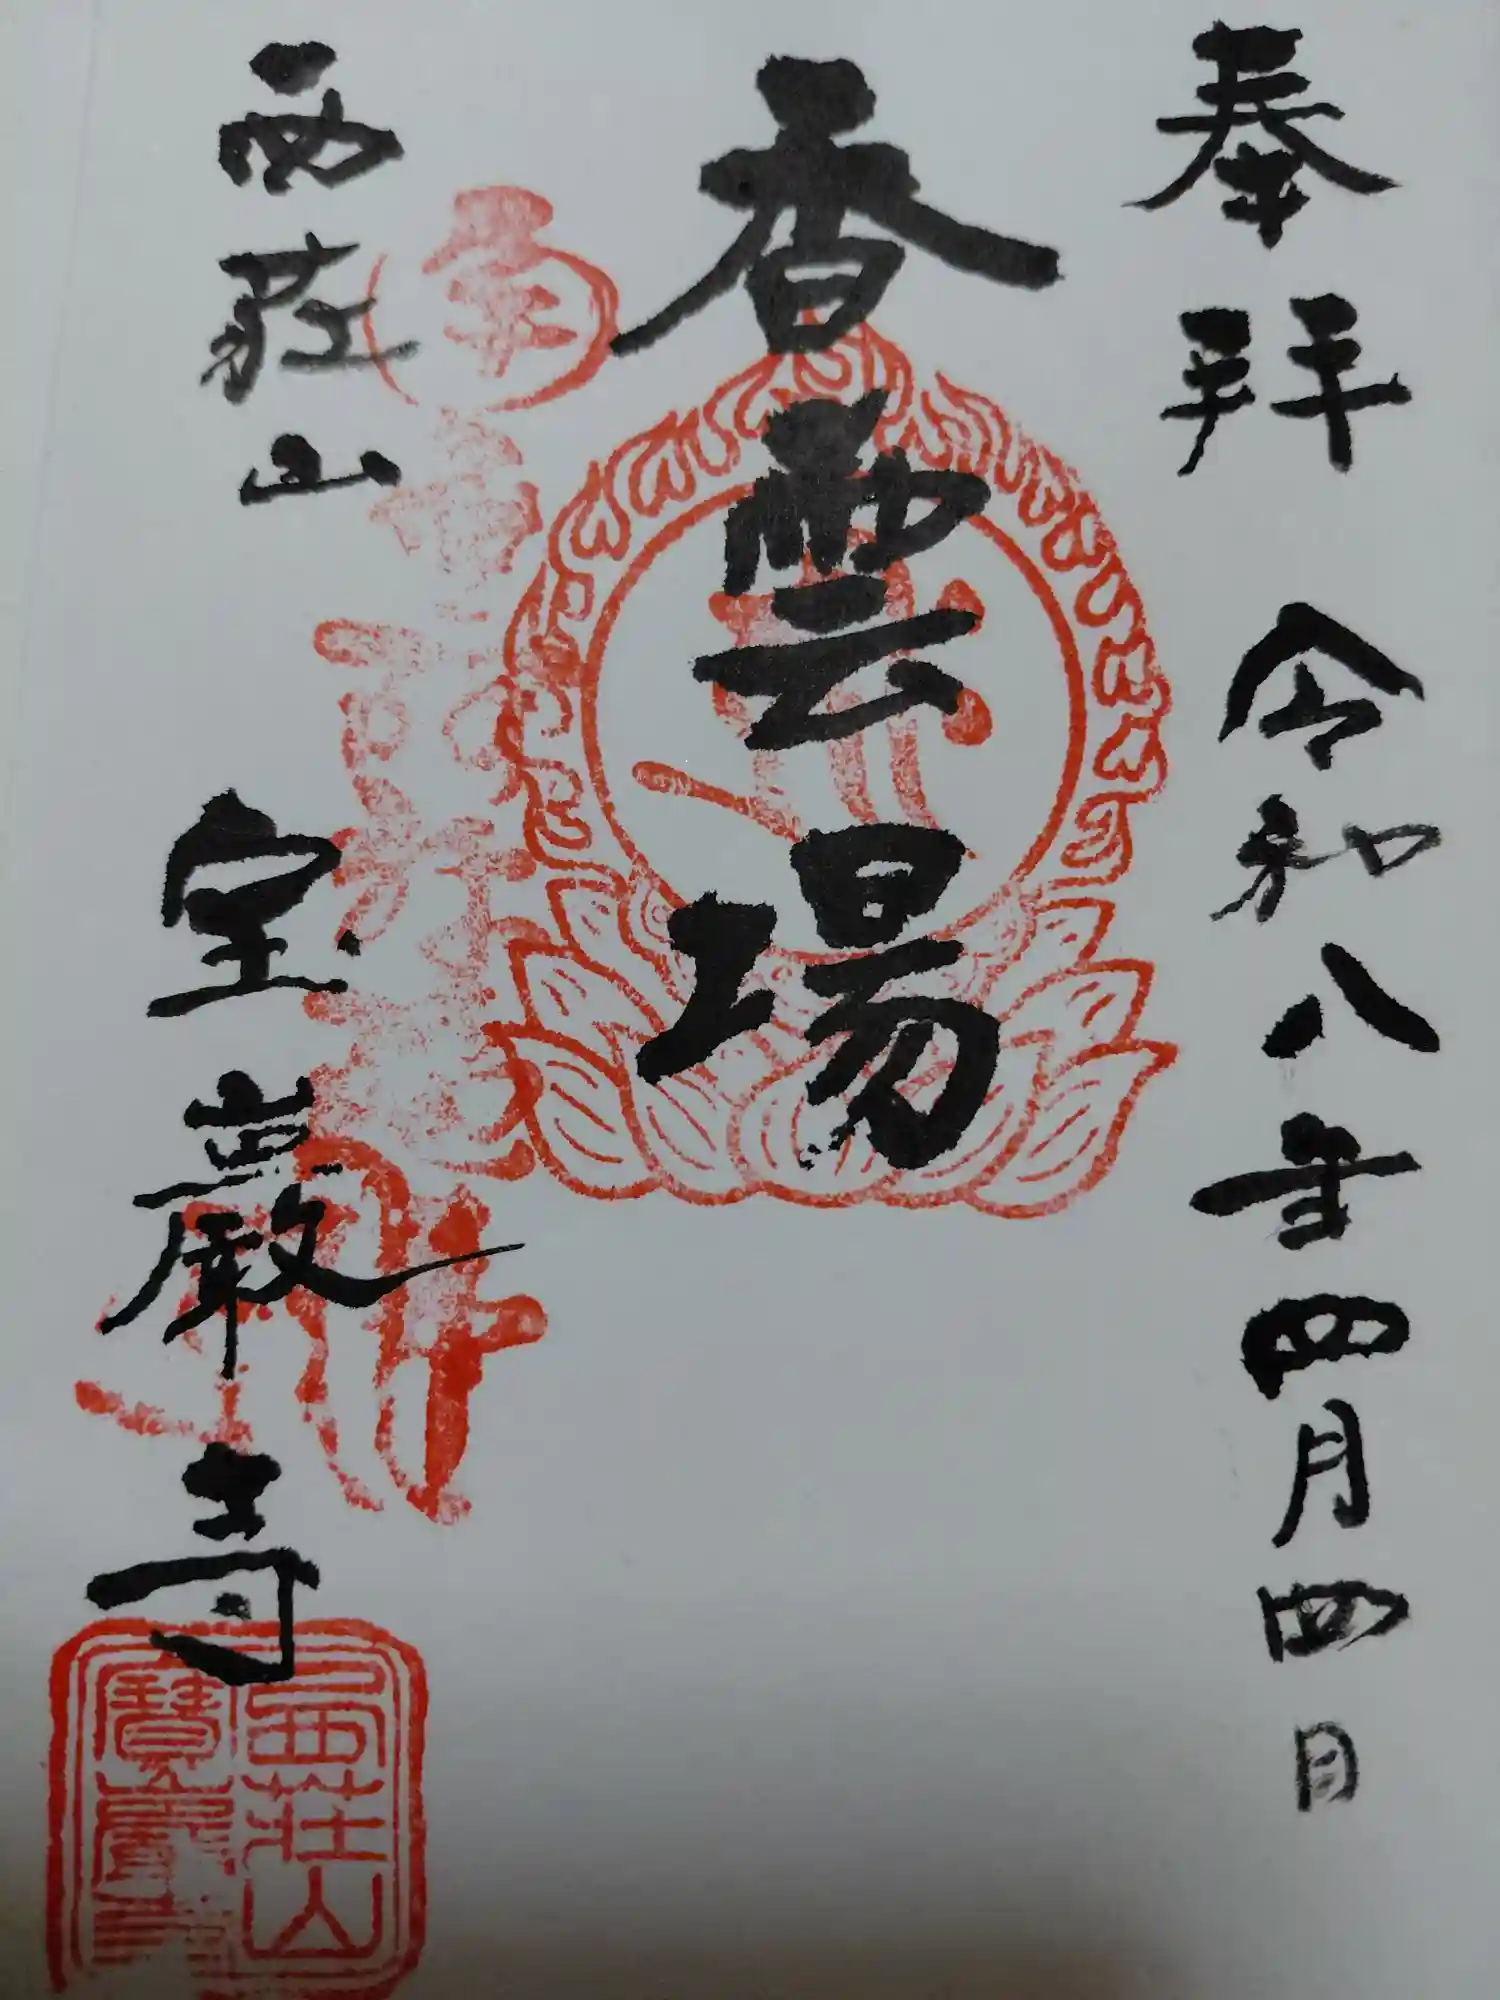 奉拝 令和八年四月四日
香雲場
西荘山 宝巖寺
西荘山
寶巖